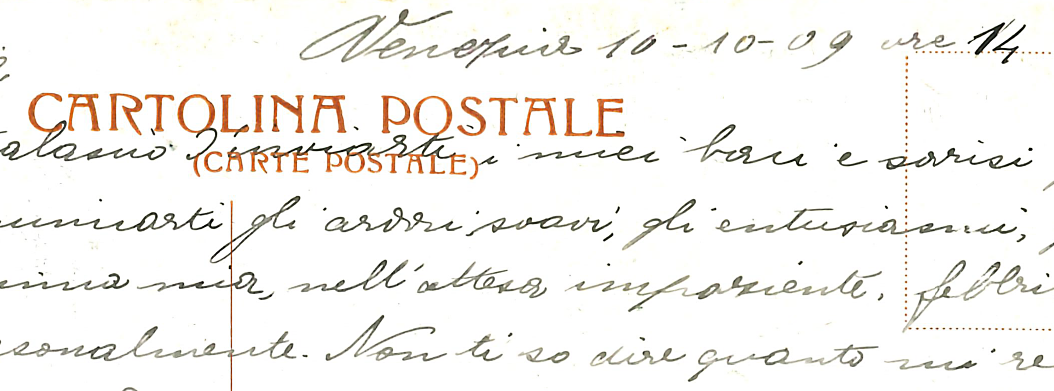 Venezia 10-10-09 ore 14
CARTOLINA POSTALE
d'inviarti i miei baci e sorrisi
(CARTE POSTALE)
gli ardori soavi, gli entusiasmi,
mia, nell'attesa impaziente, febbri
sonalmente. Non ti so dire quanto mi re